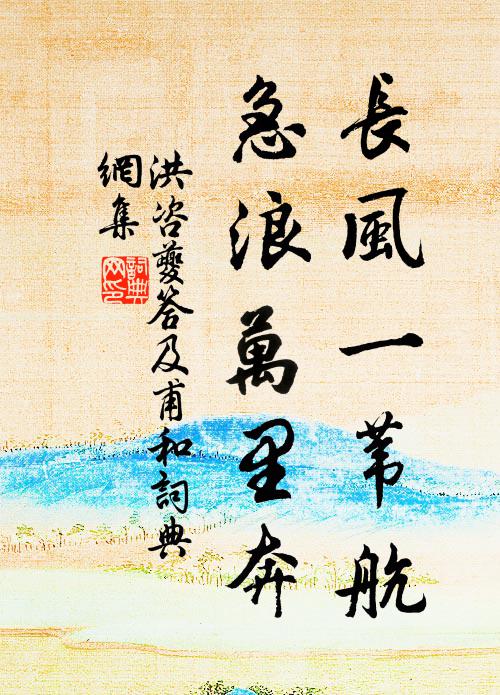 長風一苇航
急浪萬里奔
洪咨夔答及甫和詞典
網集
詞典
网印